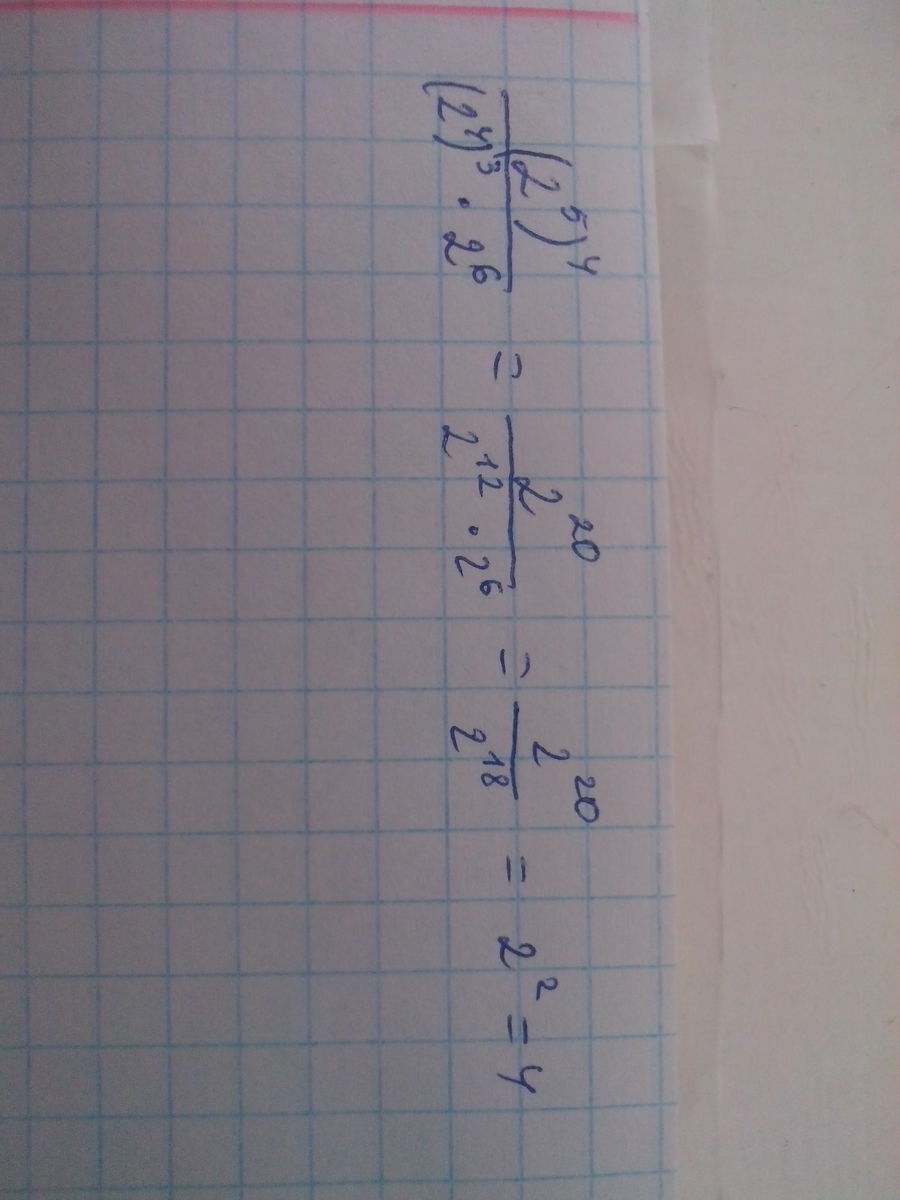 (2⁵)⁴ / ((2⁴)³ · 2⁶) = 2²⁰ / (2¹² · 2⁶) = 2²⁰ / 2¹⁸ = 2² = 4